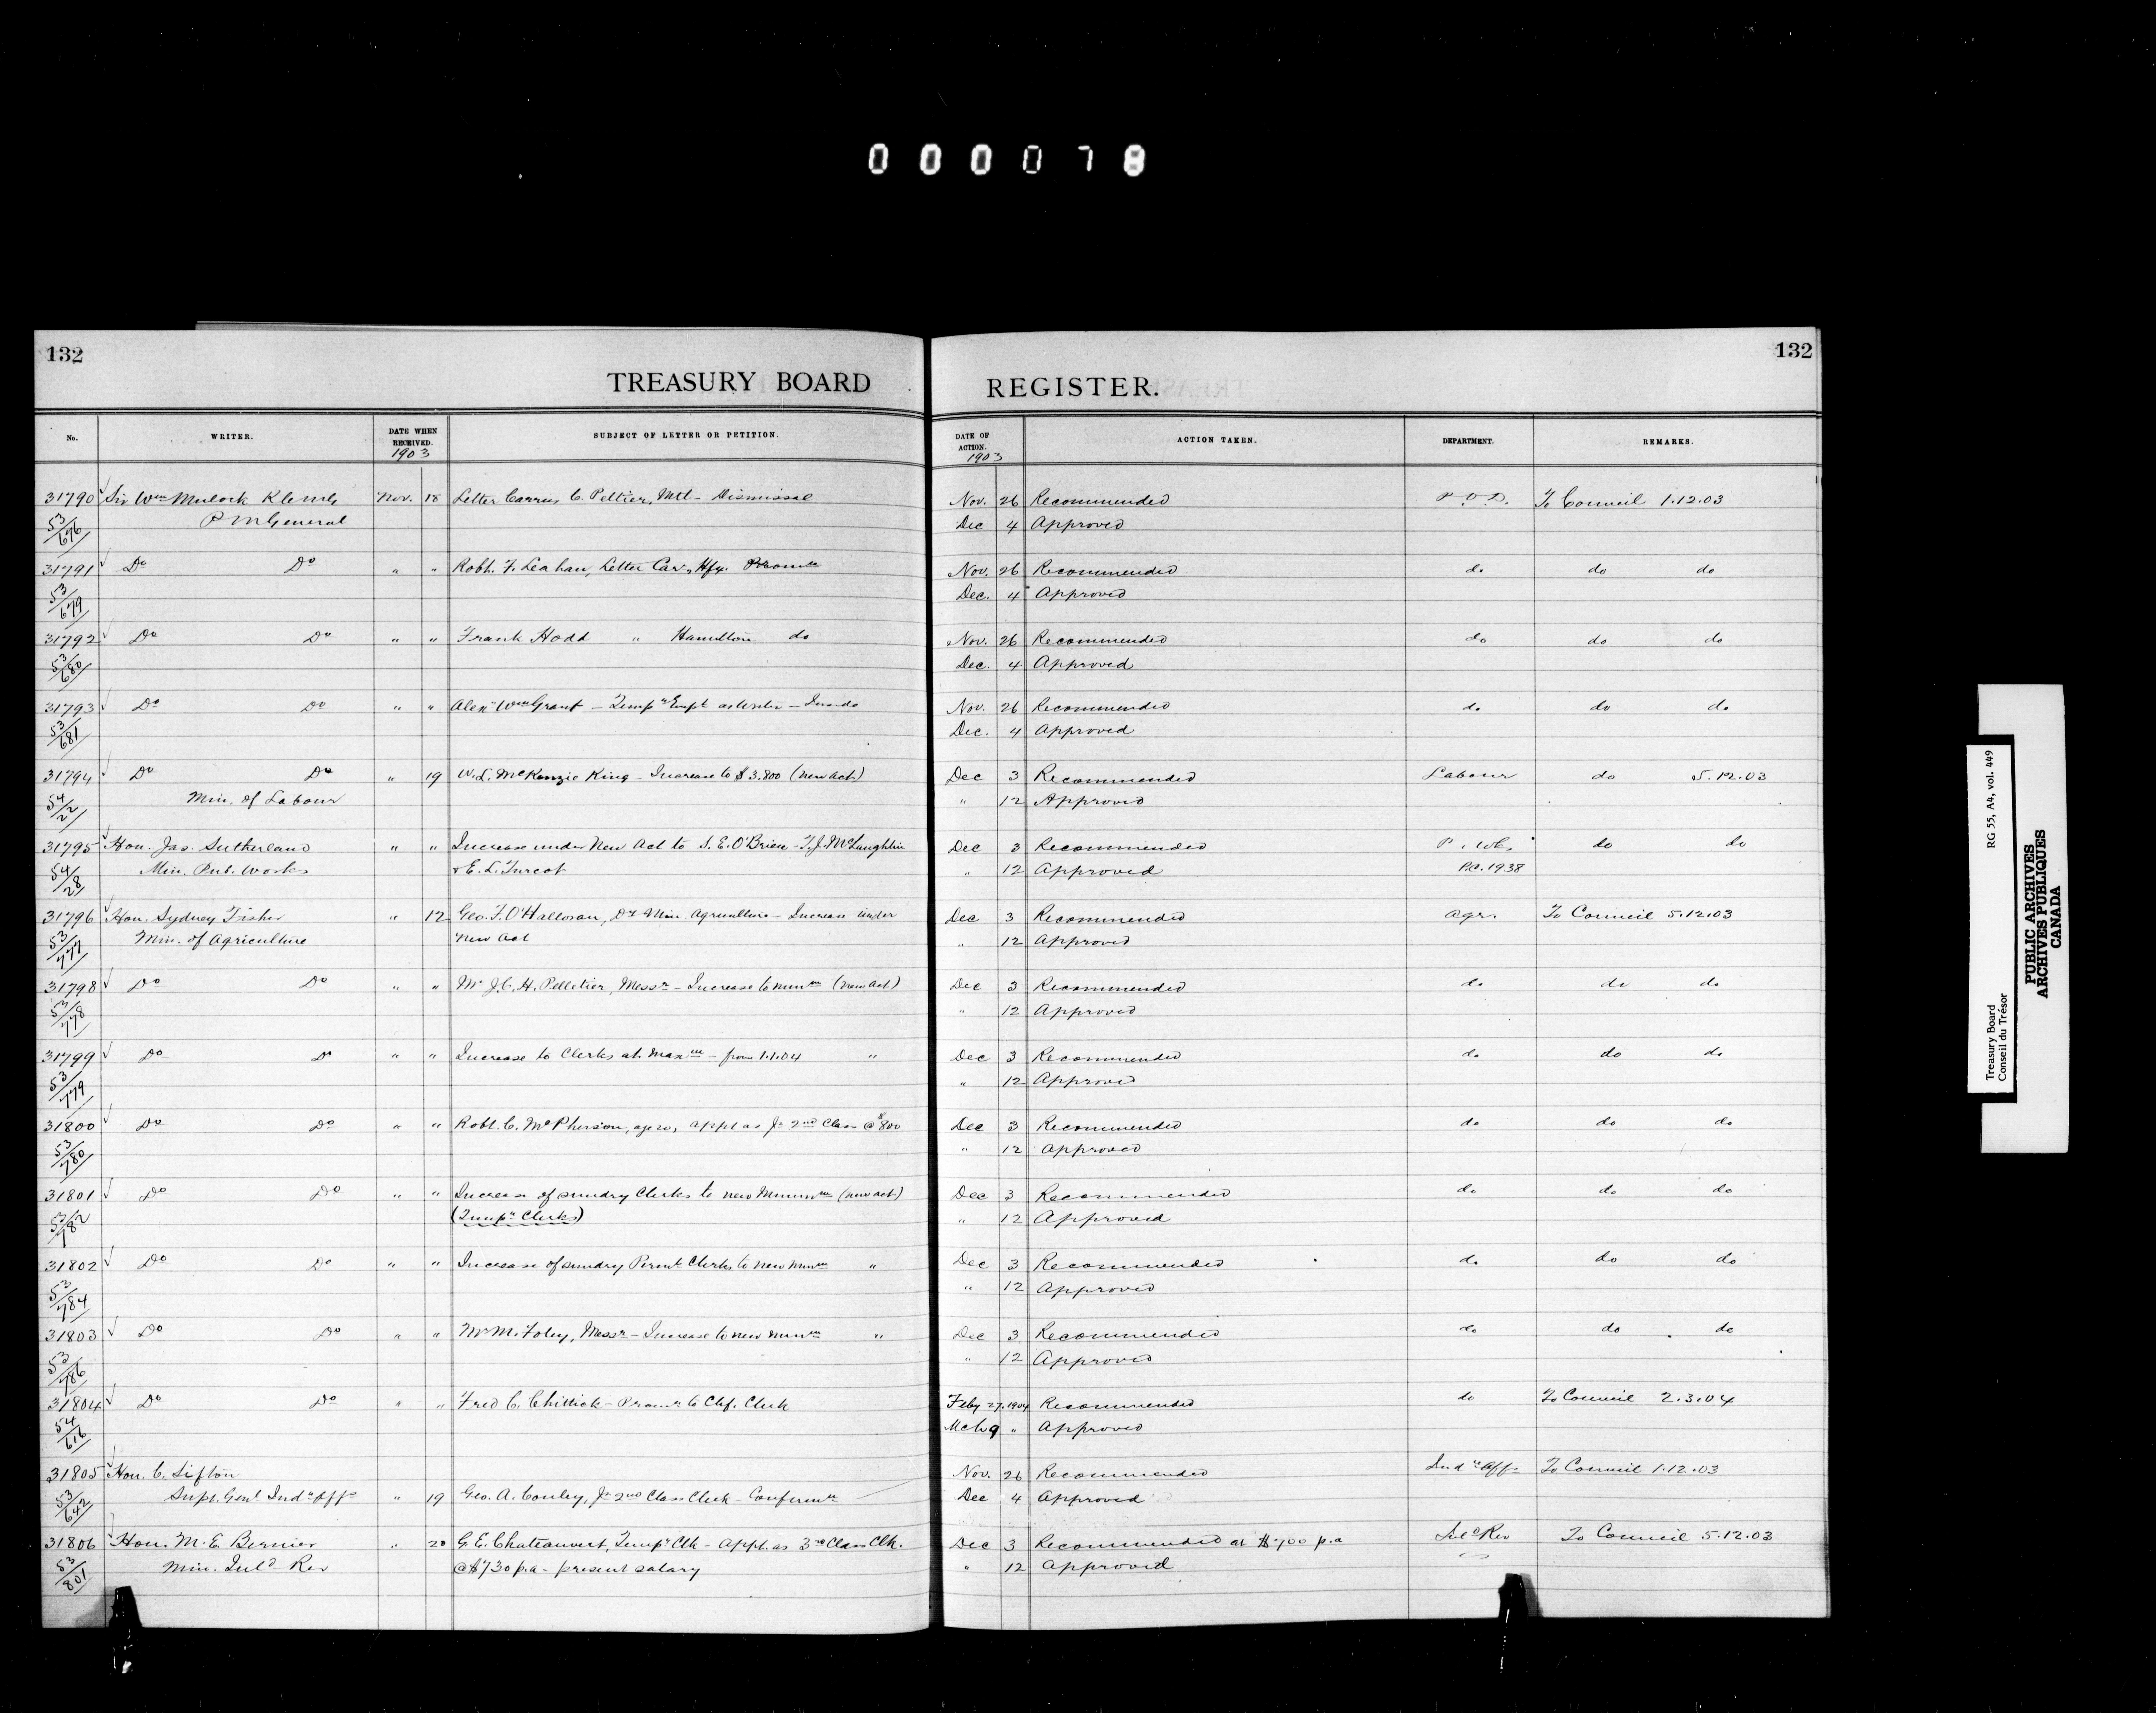 000078
132
132
TREASURY BOARD REGISTER.
No. WRITER. DATE WHEN RECEIVED. 1903 SUBJECT OF LETTER OR PETITION. DATE OF ACTION. 1903 ACTION TAKEN. DEPARTMENT. REMARKS.
31790 Sir Wm Mulock Nov. 18 Letter Carrier C. Peltier, Mtl - Dismissal Nov. 26 Recommended P.O.D. To Council 1.12.03
53/676 P M General Dec 4 Approved
31791 Do Do " " Robt. F. Leahan, Letter Carr, Hfx. Nov. 26 Recommended do do do
53/679 Dec. 4 Approved
31792 Do Do " " Frank Hodd " Hamilton do Nov. 26 Recommended do do do
53/680 Dec. 4 Approved
31793 Do Do " " Alexr Wm Grant - Tempy Empt as Writer - Inside Nov. 26 Recommended do do do
53/681 Dec. 4 Approved
31794 Do Do " 19 W. L. McKenzie King - Increase to $3.800 (new act) Dec 3 Recommended Labour do 5.12.03
54/2 Min. of Labour " 12 Approved
31795 Hon. Jas. Sutherland " " Increase under New Act to S. E. O'Brien - T. J. McLaughlin Dec 3 Recommended P. Wks do do
54/28 Min. Pub. Works & E. L. Turcot " 12 Approved P.C. 1938
31796 Hon. Sydney Fisher " 12 Geo. F. O'Halloran, Dy Min. Agriculture - Increase under Dec 3 Recommended Agr. To Council 5.12.03
53/777 Min. of Agriculture New Act " 12 Approved
31798 Do Do " " Mr J. C. H. Pelletier, Messr - Increase to minm (new act) Dec 3 Recommended do do do
53/778 " 12 Approved
31799 Do Do " " Increase to Clerks at Maxm - from 1.1.04 " Dec 3 Recommended do do do
53/779 " 12 Approved
31800 Do Do " " Robt. C. McPherson, age 20, appt as Jr 2nd Class @ $800 Dec 3 Recommended do do do
53/780 " 12 Approved
31801 Do Do " " Increase of sundry Clerks to new Minimum (new act) Dec 3 Recommended do do do
53/782 (Tempy Clerks) " 12 Approved
31802 Do Do " " Increase of sundry Permt Clerks to new Minm " Dec 3 Recommended do do do
53/784 " 12 Approved
31803 Do Do " " Mr M. Foley, Messr - Increase to new minm " Dec 3 Recommended do do do
53/786 " 12 Approved
31804 Do Do " " Fred C. Chittick - Promn to Chf. Clerk Feby 27. 1904 Recommended do To Council 2.3.04
54/616 Mch 9 " Approved
31805 Hon. C. Sifton Nov. 26 Recommended Indn Affs To Council 1.12.03
53/642 Supt. Genl Indn Affs " 19 Geo. A. Conley, Jr 2nd Class Clerk - Dec 4 Approved
31806 Hon. M. E. Bernier " 20 G. E. Chateauvert, Tempy Clk - Appt. as 3rd Class Clk. Dec 3 Recommended at $700 p.a To Council 5.12.03
53/801 Min. Inld Rev @ $730 p.a - present salary " 12 Approved
Treasury Board RG 55, A4, vol. 449
Conseil du Trésor
PUBLIC ARCHIVES
ARCHIVES PUBLIQUES
CANADA